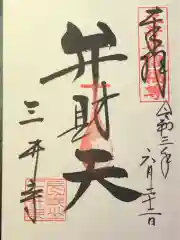 奉拝
令和三年
六月二十一日
弁財天
三井寺